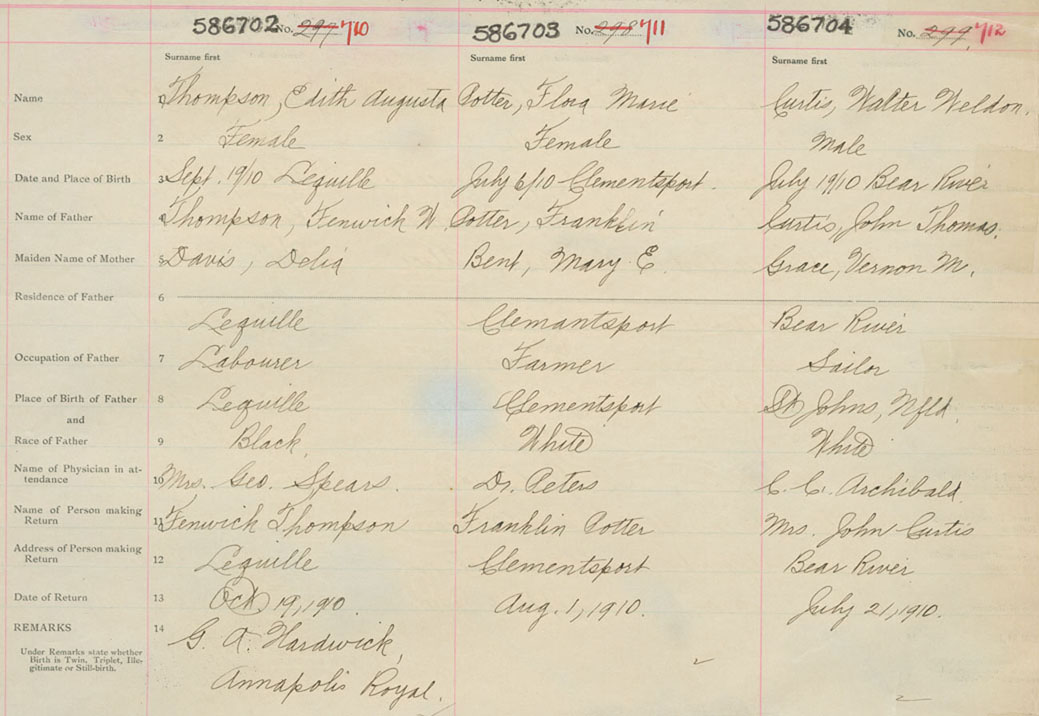 586702 No. 297 710 586703 No. 298 711 586704 No. 299 712
Surname first Surname first Surname first
Name 1 Thompson, Edith Augusta Potter, Flora Marie Curtis, Walter Weldon.
Sex 2 Female Female Male
Date and Place of Birth 3 Sept. 19/10 Lequille July 6/10 Clementsport. July 19/10 Bear River
Name of Father 4 Thompson, Fenwick W. Potter, Franklin Curtis, John Thomas.
Maiden Name of Mother 5 Davis, Delia Bent, Mary E. Grace, Vernon M.
Residence of Father 6
Lequille Clemantsport Bear River
Occupation of Father 7 Labourer Farmer Sailor
Place of Birth of Father 8 Lequille Clementsport St Johns, Nfld.
and
Race of Father 9 Black White White
Name of Physician in at-
tendance 10 Mrs. Geo. Spears. Dr. Peters C. C. Archibald.
Name of Person making
Return 11 Fenwick Thompson Franklin Potter Mrs. John Curtis
Address of Person making
Return 12 Lequille Clementsport Bear River
Date of Return 13 Oct 19, 1910. Aug. 1, 1910. July 21, 1910.
REMARKS 14 G. A. Hardwick,
Under Remarks state whether
Birth is Twin, Triplet, Ille-
gitimate or Still-birth.
Annapolis Royal.